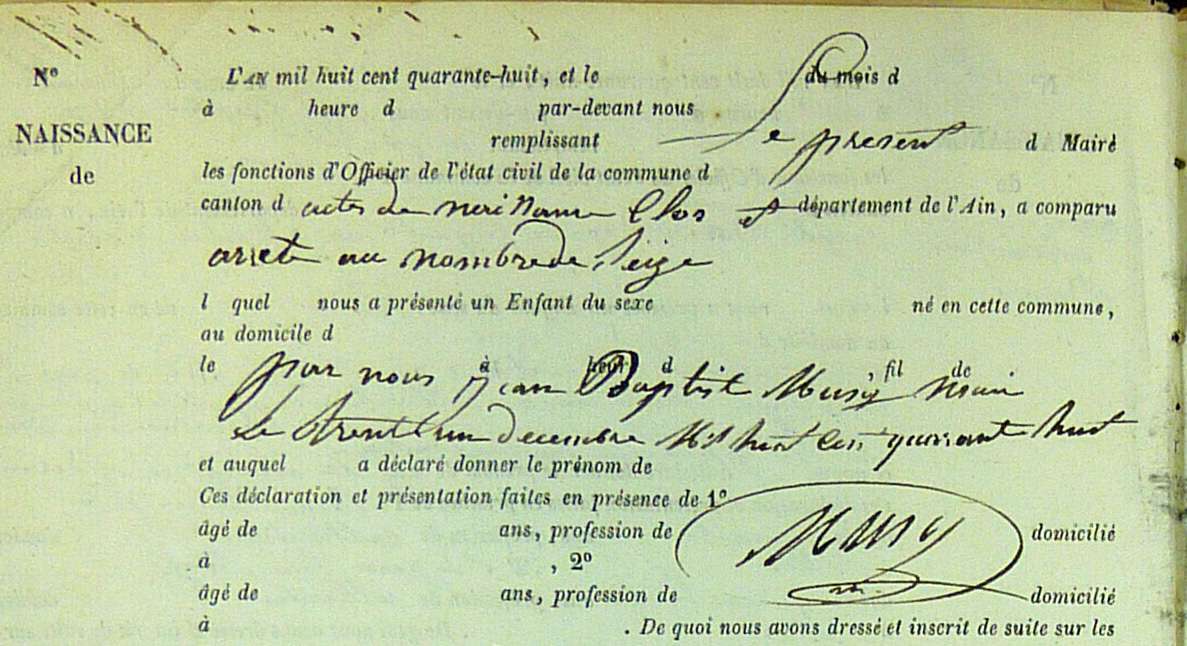 N° L'AN mil huit cent quarante-huit, et le du mois d
à heure d par-devant nous
NAISSANCE remplissant Le present d Maire
de les fonctions d'Officier de l'état civil de la commune d
canton d actes de Naissance Clos et département de l'Ain, a comparu
arreté au nombre de Seize
l quel nous a présenté un Enfant du sexe né en cette commune,
au domicile d
le à heure d , fil de
par nous Jean Baptiste Musy Maire
Le trente un decembre Mil huit cent quarante huit
et auquel a déclaré donner le prénom de
Ces déclaration et présentation faites en présence de 1°
âgé de ans, profession de Musy domicilié
à , 2°
âgé de ans, profession de domicilié
à . De quoi nous avons dressé et inscrit de suite sur les